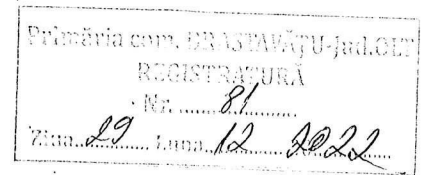 Primăria com. BRASTAVĂȚU-Jud.OLT
REGISTRATURĂ
Nr. ........81............
Ziua..29...... Luna..12....2022......